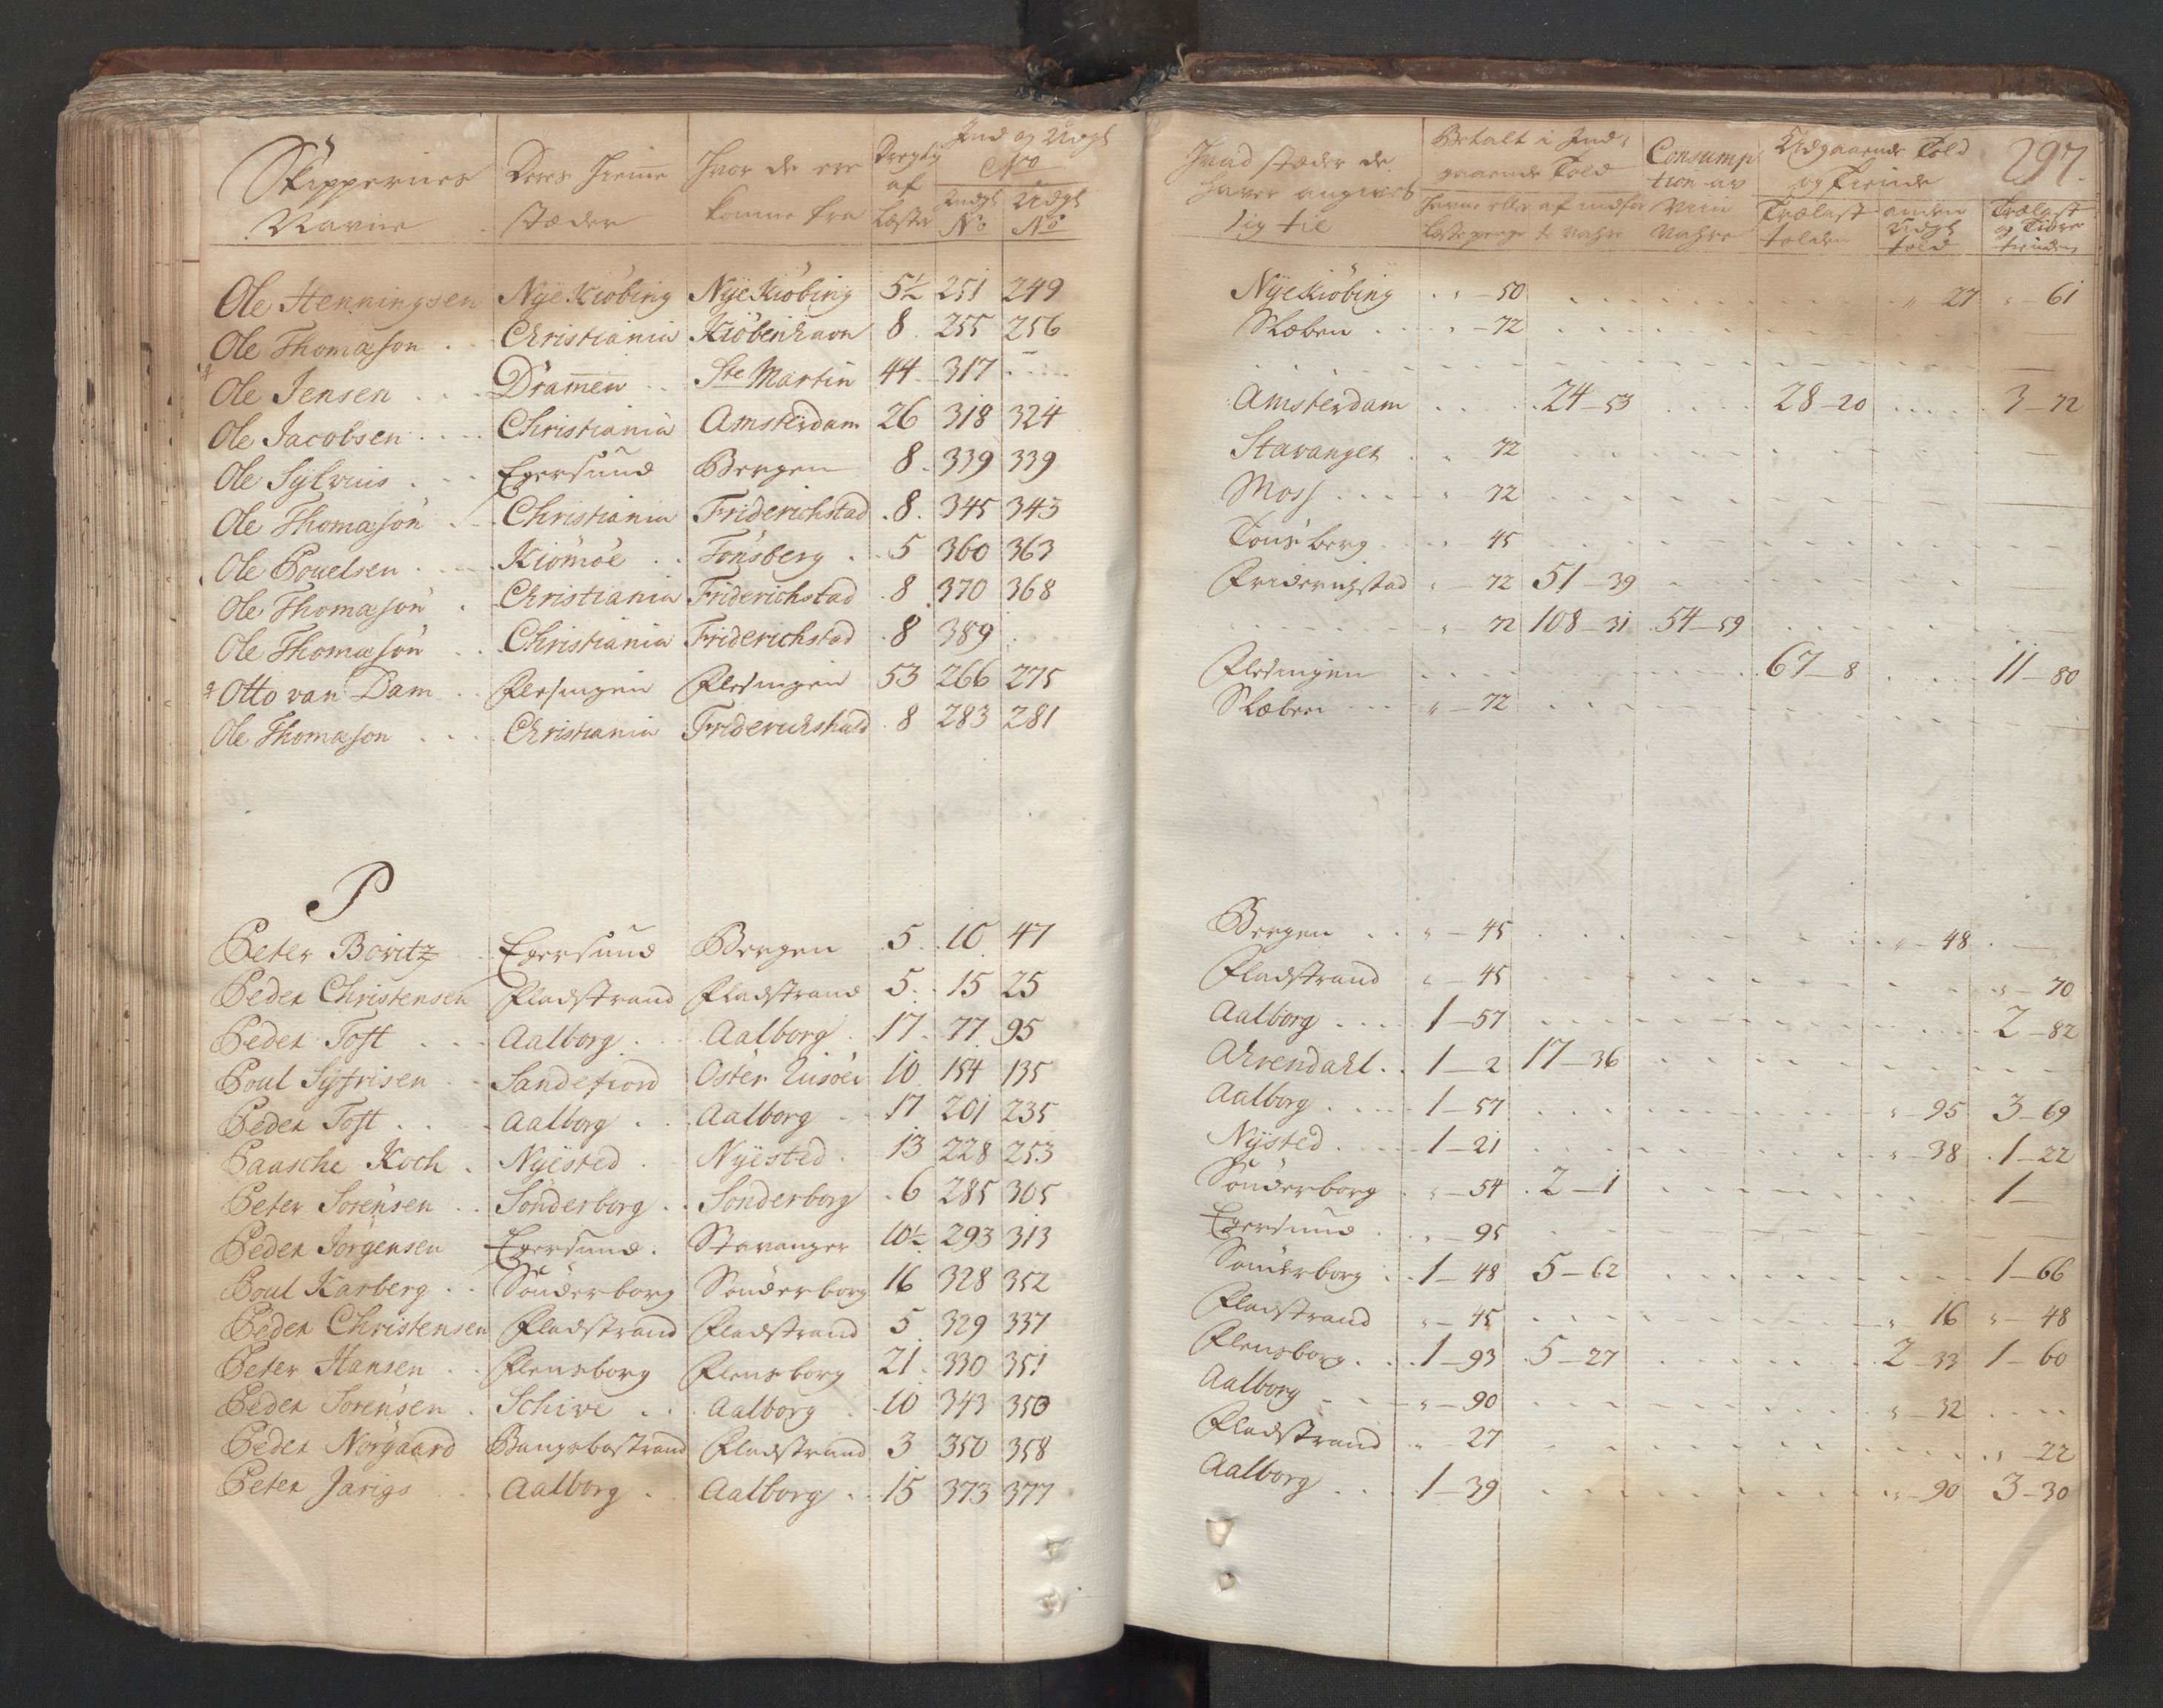 Skippernes Navne | Deres Hiemme stæder | Hvor de ere komne fra | Drægtig af Læster | Ind og Udgt No | Indgt No | Udgt No
Ole Henningsen | Nÿe Kiöbing | Nÿe Kiöbing | 5½ | 251 | 249
Ole Thomæson | Christiania | Kiöbenhavn | 8 | 255 | 256
Ole Jensen | Dramen | Ste Martin | 44 | 317 | -
Ole Jacobsen | Christiania | Amsterdam | 26 | 318 | 324
Ole Sÿlvius | Egersund | Bergen | 8 | 339 | 339
Ole Thomæson | Christiania | Friderichstad | 8 | 345 | 343
Ole Pouelsen | Kiömöe | Tonsberg | 5 | 360 | 363
Ole Thomæson | Christiania | Friderichstad | 8 | 370 | 368
Ole Thomæson | Christiania | Friderichstad | 8 | 389
Otto van Dam | Flesingen | Flesingen | 53 | 266 | 275
Ole Thomæson | Christiania | Friderichshald | 8 | 283 | 281
P
Peter Bovitz | Egersund | Bergen | 5 | 10 | 47
Peder Christensen | Fladstrand | Fladstrand | 5 | 15 | 25
Peder Toft | Aalborg | Aalborg | 17 | 77 | 95
Poul Sÿfrisen | Sandefiord | Öster Riisöer | 10 | 154 | 135
Peder Toft | Aalborg | Aalborg | 17 | 201 | 235
Paasche Koch | Nÿested | Nÿested | 13 | 228 | 253
Peter Sorensen | Sönderborg | Sonderborg | 6 | 285 | 305
Peder Jorgensen | Egersund | Stavanger | 10½ | 293 | 313
Poul Karberg | Sönderborg | Sönderborg | 16 | 328 | 352
Peder Christensen | Fladstrand | Fladstrand | 5 | 329 | 337
Peter Hansen | Flensborg | Flensborg | 21 | 330 | 351
Peder Sorensen | Schive | Aalborg | 10 | 343 | 350
Peder Norgaard | Bangsbostrand | Fladstrand | 3 | 350 | 358
Peter Jarigs | Aalborg | Aalborg | 15 | 373 | 377
297.
Hvad stæder de haver angivet sig til | Betalt i Ind- gaaende Told | Consumption av Viin Vahre | Udgaaende Told og Tiende
Trælast tolden | anden Udgt told | Trælast og Tiære tienden
Nÿe Kiöbing | " - 50 | " 27 | " - 61
Skeben | " - 72
Amsterdam | 24 - 53 | 28 - 20 | 3 - 72
Stavanger | " 72
Moss | " 72
Tonsberg | " 45
Friderichstad | " - 72 | 51 - 39
" 72 | 108 - 31 | 54 - 59
Flesingen | 67 - 8 | 11 - 80
Skeben | " - 72
Bergen | " - 45 | " - 48
Fladstrand | " - 45 | " - 70
Aalborg | 1 - 57 | 2 - 82
Ahrendahl | 1 - 2 | 17 - 36
Aalborg | 1 - 57 | " - 95 | 3 - 69
Nÿsted | 1 - 21 | " - 38 | 1 - 22
Sönderborg | " - 54 | 2 - 1 | 1 -
Egersund | " - 95
Sönderborg | 1 - 48 | 5 - 62 | 1 - 66
Fladstrand | " - 45 | " 16 | " - 48
Flensborg | 1 - 93 | 5 - 27 | 2 - 33 | 1 - 60
Aalborg | " - 90 | " - 32
Fladstrand | " 27 | " - 22
Aalborg | 1 - 39 | " - 90 | 3 - 30